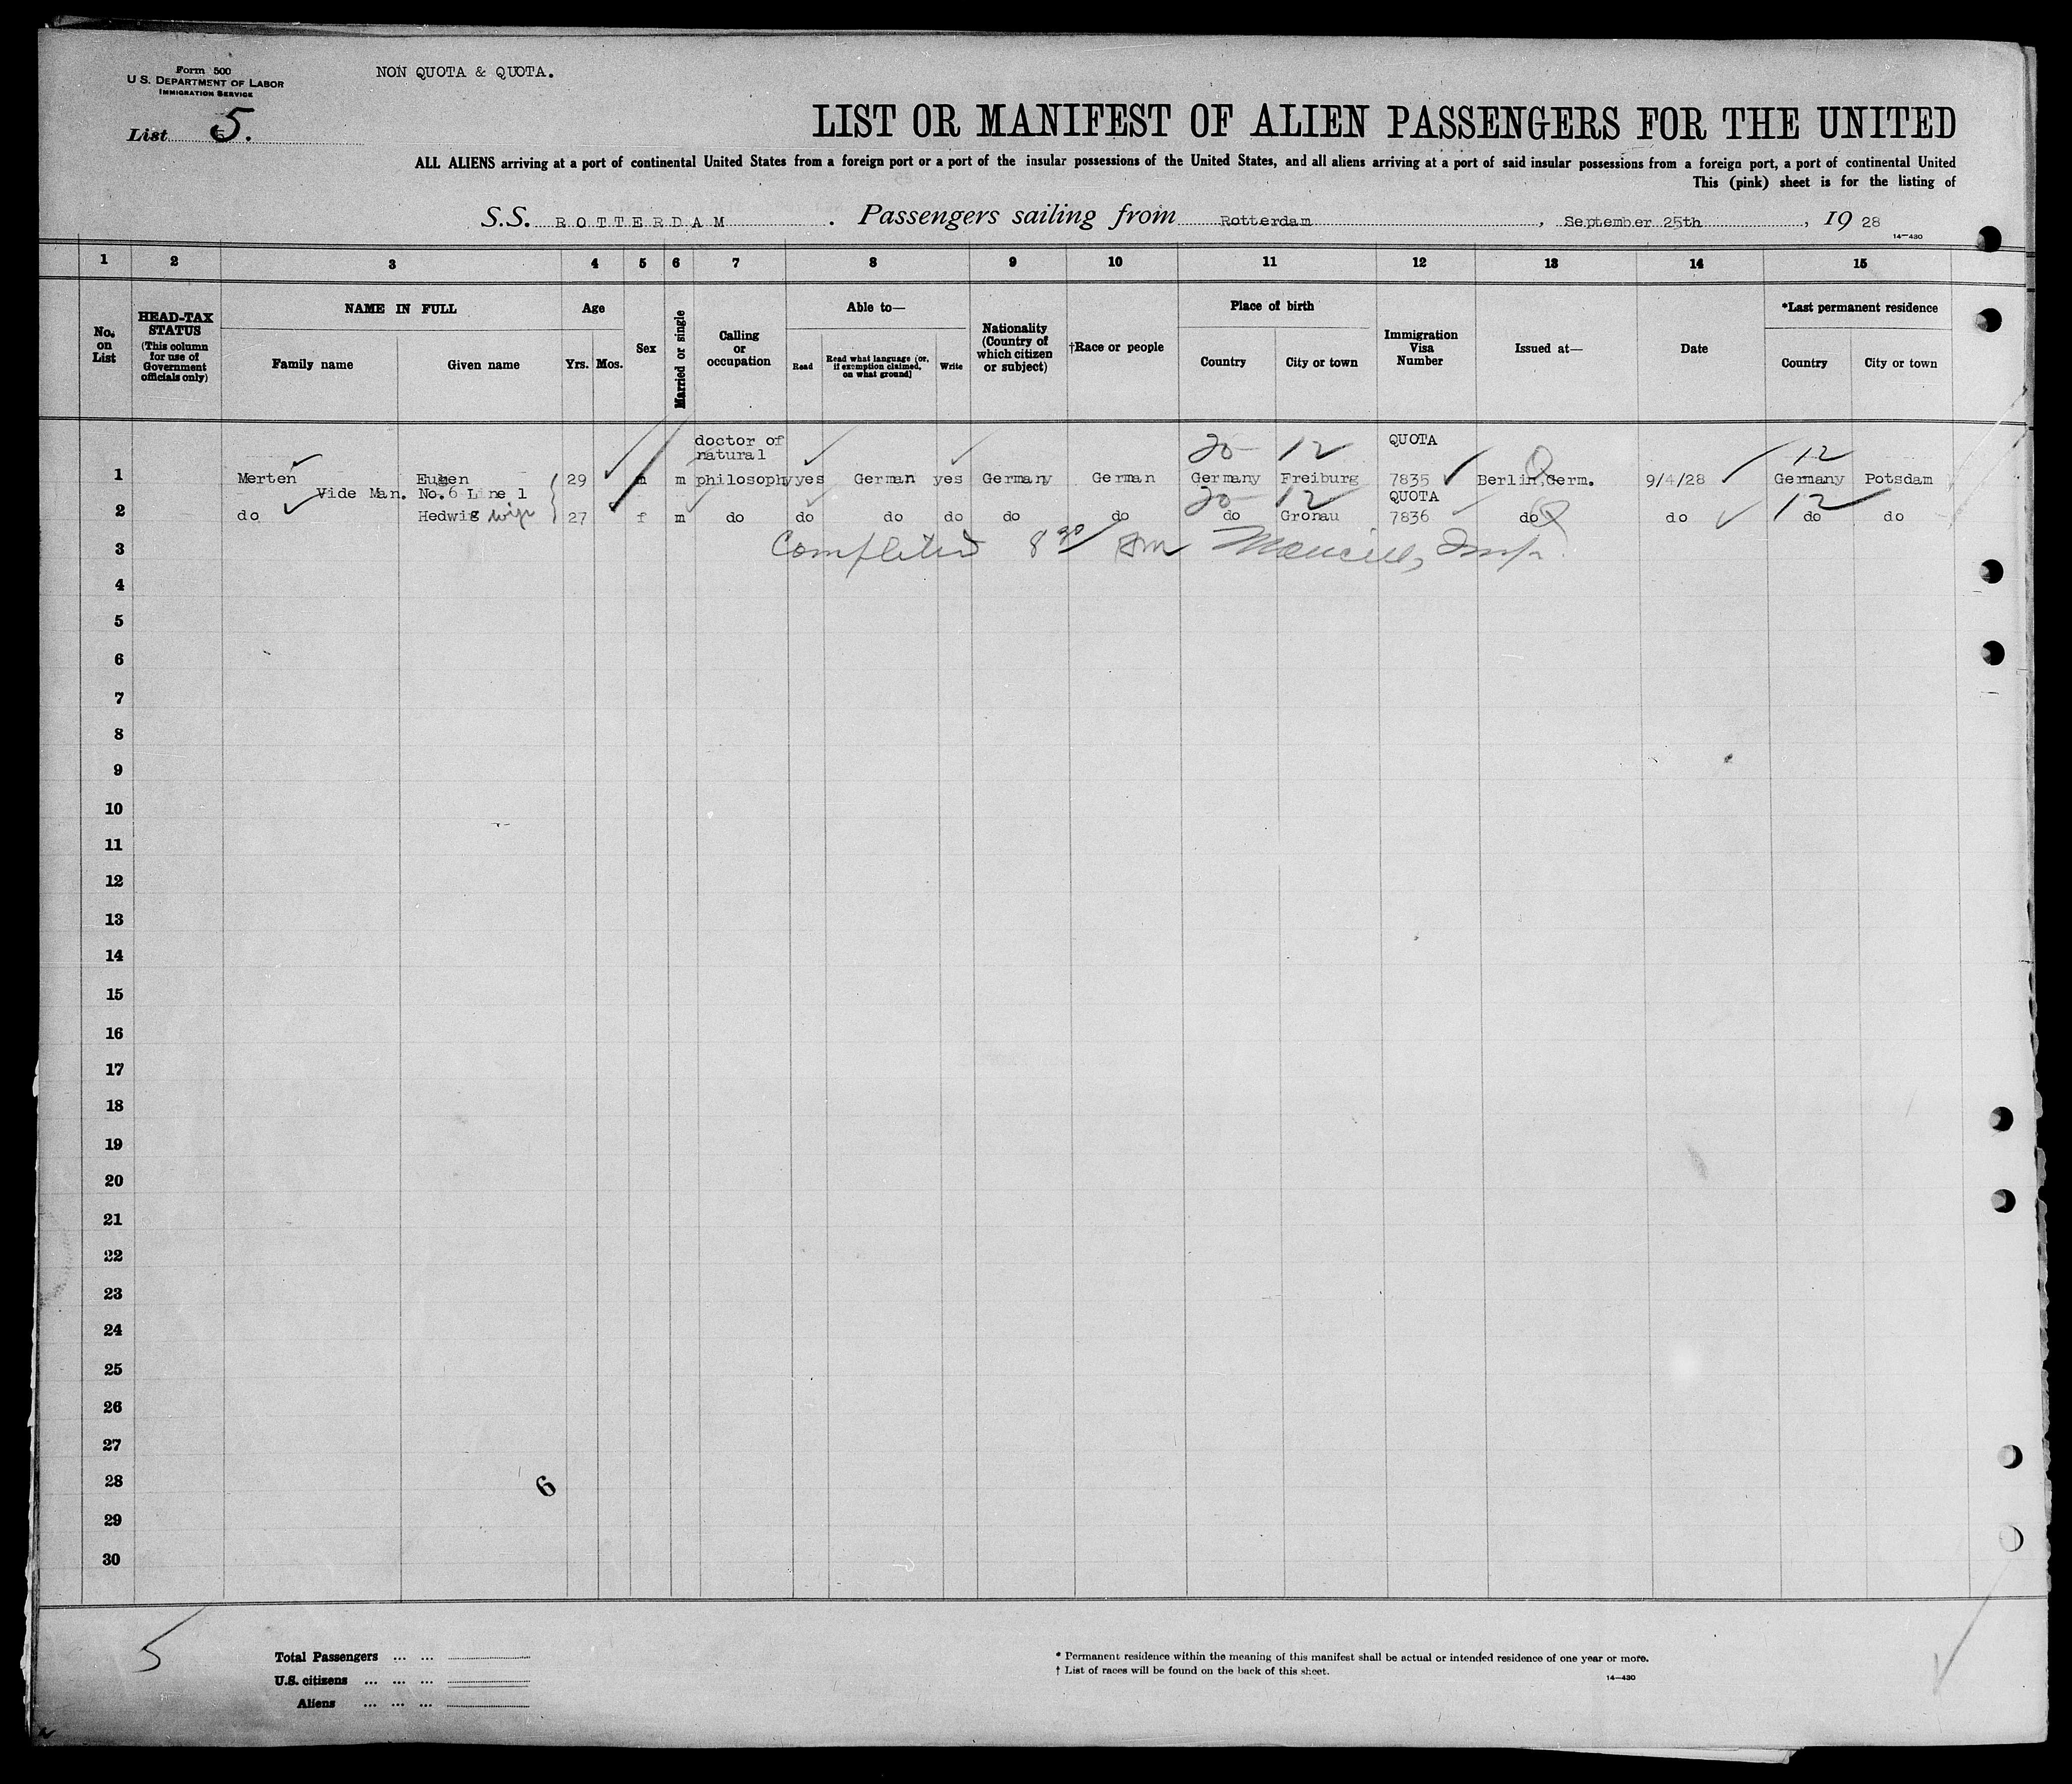 Form 500
U S. DEPARTMENT OF LABOR
IMMIGRATION SERVICE
NON QUOTA & QUOTA.
List 5.
LIST OR MANIFEST OF ALIEN PASSENGERS FOR THE UNITED
ALL ALIENS arriving at a port of continental United States from a foreign port or a port of the insular possessions of the United States, and all aliens arriving at a port of said insular possessions from a foreign port, a port of continental United
This (pink) sheet is for the listing of
S.S. ROTTERDAM. Passengers sailing from Rotterdam, September 25th, 19 28
14—430
1 2 3 4 5 6 7 8 9 10 11 12 13 14 15
No. on List
HEAD-TAX STATUS (This column for use of Government officials only)
NAME IN FULL
Family name Given name
Age
Yrs. Mos.
Sex
Married or single
Calling or occupation
Able to—
Read
Read what language [or, if exemption claimed, on what ground]
Write
Nationality (Country of which citizen or subject)
†Race or people
Place of birth
Country City or town
Immigration Visa Number
Issued at—
Date
*Last permanent residence
Country City or town
doctor of 20 12 QUOTA
natural 12
1 Merten Eugen 29 m m philosophy yes German yes Germany German Germany Freiburg 7835 Berlin, Germ. 9/4/28 Germany Potsdam
Vide Man. No. 6 Line 1 20 12 QUOTA 12
2 do Hedwig wife 27 f m do do do do do do do Gronau 7836 do do do do
3 Completed 8 30 Am Insp.
4
5
6
7
8
9
10
11
12
13
14
15
16
17
18
19
20
21
22
23
24
25
26
27
28 6
29
30
5
Total Passengers ... ...
U.S. citizens ... ... ...
Aliens ... ... ...
* Permanent residence within the meaning of this manifest shall be actual or intended residence of one year or more.
† List of races will be found on the back of this sheet.
14—430